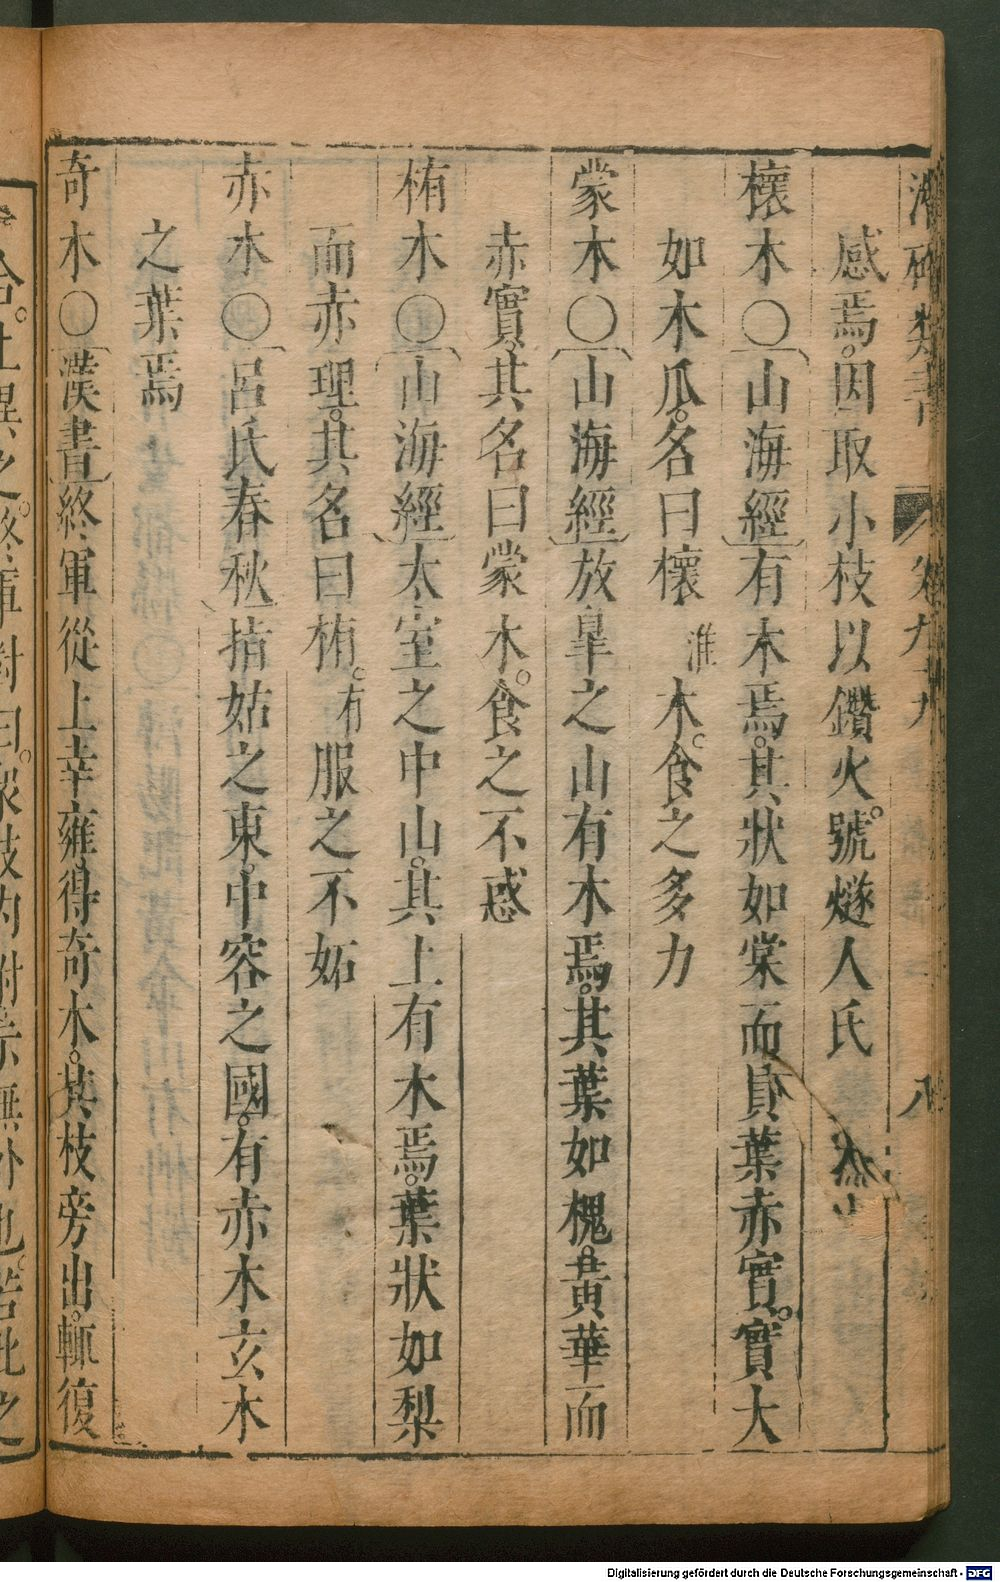 類書 卷九十九 八
感焉。因取小枝以鑽火。號燧人氏
櫰木〇山海經有木焉。其狀如棠而員葉赤實。實大
如木瓜。名曰櫰淮木。食之多力
蒙木〇山海經放臯之山有木焉。其葉如槐。黃華而
赤實。其名曰蒙木。食之不惑
栯木〇山海經太室之中山。其上有木焉。葉狀如梨
而赤理。其名曰栯。有服之不妬
赤木〇呂氏春秋指姑之東。中容之國。有赤木玄木
之葉焉
奇木〇漢書終軍從上幸雍。得奇木。其枝旁出。輒復
合。上異之。終軍對曰。眾枝內附。示無外也。若此之
Digitalisierung gefördert durch die Deutsche Forschungsgemeinschaft - DFG